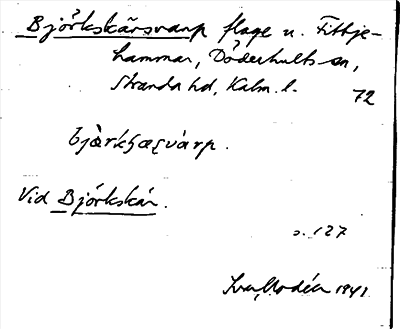 Björkskärsvarp flage u. Fittje-
hammar, Döderhults sn,
Stranda hd, Kalm. l.
72
bjàrkʂæʂvárp.
Vid Björkskär.
s. 127
Ivar Modéer 1941